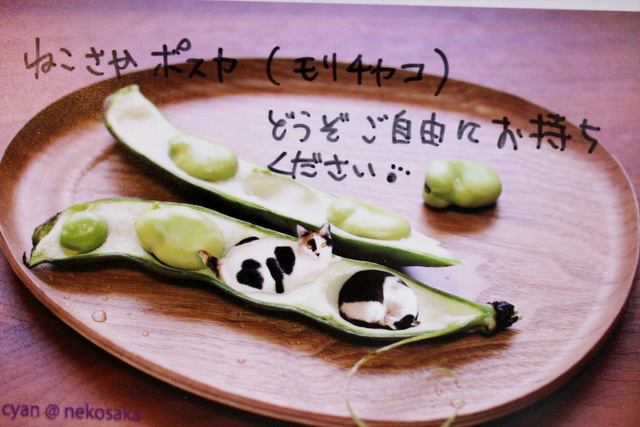 ねこさかポスカ (モリチャコ)
どうぞご自由にお持ち
ください
cyan @ nekosaka